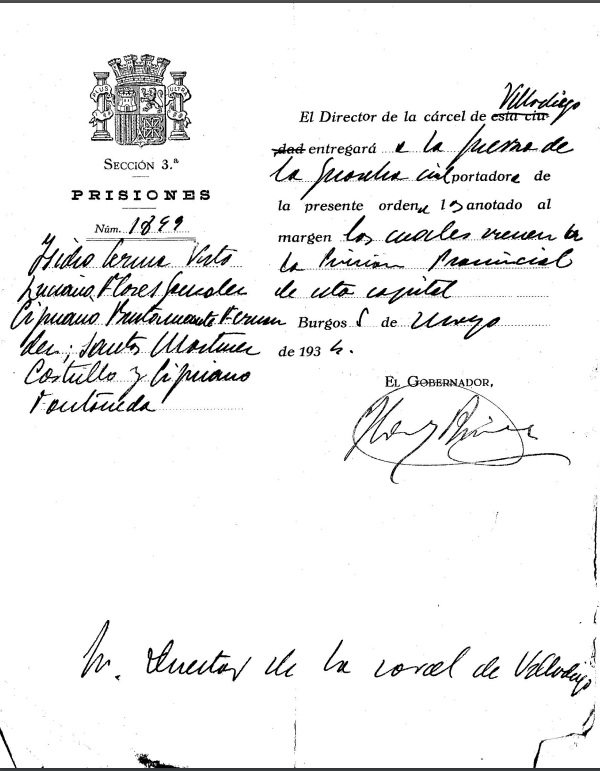 PLUS ULTRA
SECCIÓN 3.ª
PRISIONES
Núm. 1899
Isidro Serna Visto
Luciano Flores Gonzalez
Cipriano Bustamante Fernan
dez; Santos Martinez
Castrillo y Cipriano
Fontaneda
El Director de la cárcel de esta ciu Villadiego
dad entregará a la fuerza de
la Guardia civil portadora de
la presente orden a los anotado al
margen los cuales vienen a
la Prision Provincial
de esta capital
Burgos 8 de Mayo
de 1936.
EL GOBERNADOR,
Sr. Director de la carcel de Villadiego